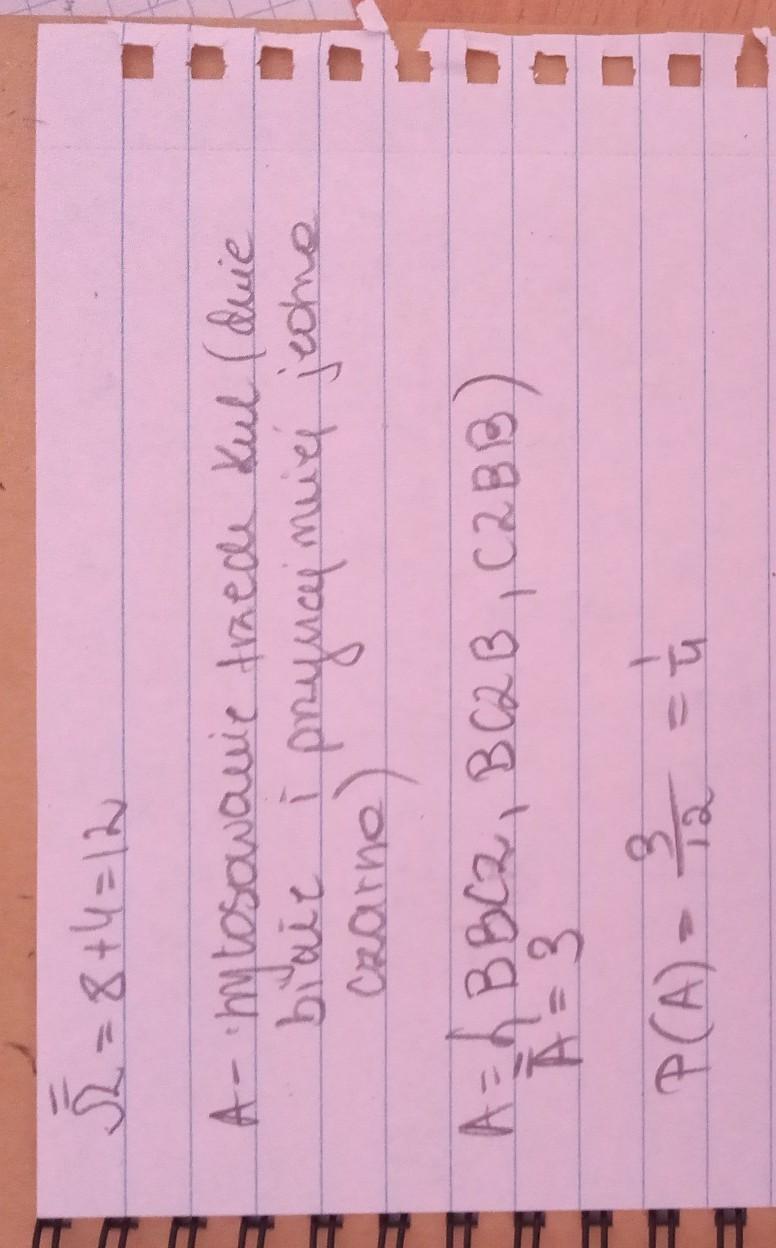 Ω̿ = 8+4=12
A - wylosowanie trzech kul (dwie
białe i przynajmniej jedna
czarna)
A={BBCZ, BCZB, CZBB)
A̿ = 3
P(A) = 3/12 = 1/4